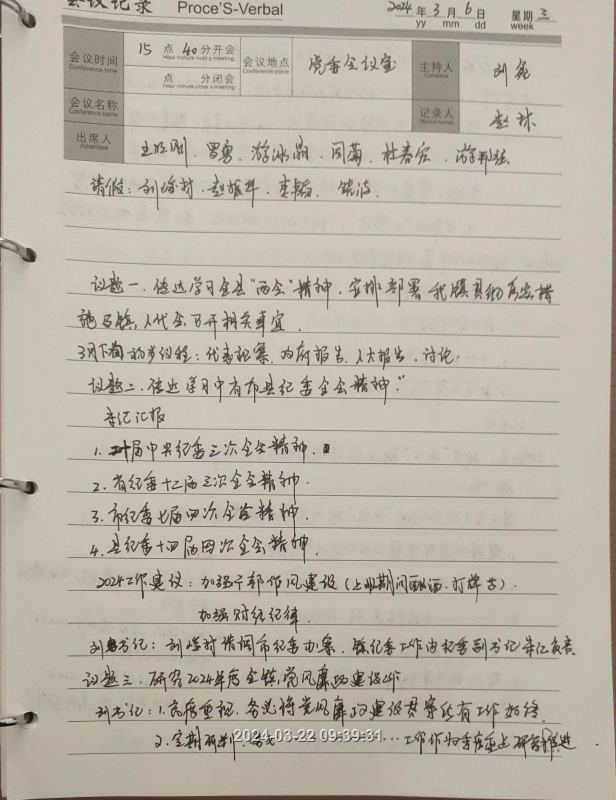 会议记录 Proce'S-Verbal 2024年3月6日 星期三
yy mm dd week
会议时间 Conference time 15点40分开会 Hour minute hold a meeting 会议地点 Conference place 党委会议室 主持人 Compere 刘
点 分闭会 Hour minute close a meeting
会议名称 Conference name 记录人 Record human 赵环
出席人 Attendee 王 罗勇、游冰 、周菊、杜春宏、游
请假:刘 、赵振华、李 、饶波
议题一、传达学习全县“两会”精神,安排部署我镇具体落实措
施及镇人代会召开相关事宜
3月下旬初步议程:代表提案、政府报告、人大报告、讨论
议题二、传达学习中省市县纪委全会精神
书记汇报
1.二十届中央纪委三次全会精神.
2.省纪委十二届三次全会精神.
3.市纪委七届四次全会精神.
4.县纪委十四届四次全会精神.
2024工作建议:加强干部作风建设(上班期间酗酒、打牌等).
加强财经纪律.
刘书记:刘 村借调市纪委办案,镇纪委工作由纪委副书记 负责
议题三、研究2024年度全镇党风廉政建设工作.
刘书记:1.高度重视,务必将党风廉政建设贯穿所有工作始终.
2.定期研判, 工作作为季度 上研究推进
2024-03-22 09:39:31